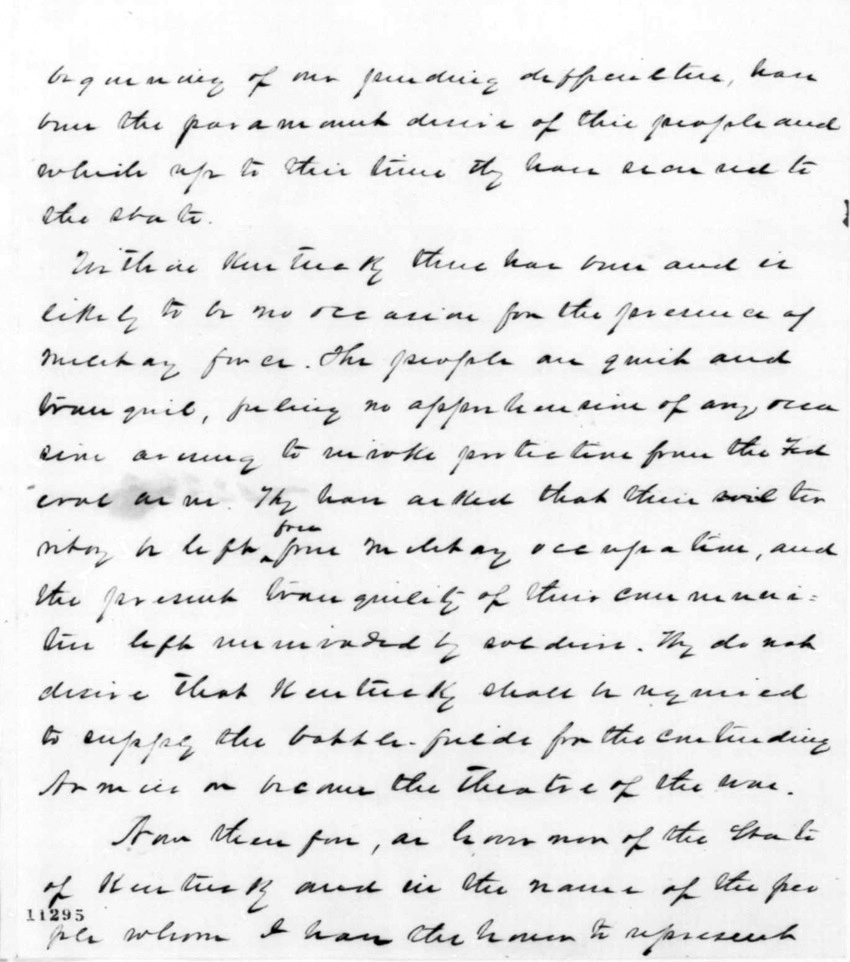 beginning of our pending difficulties, have
been the paramount desire of this people and
which up to this time they have secured to
the state.
Within Kentucky there has been and is
likely to be no occasion for the presence of
military force. The people are quiet and
tranquil, feeling no apprehension of any occa
sion arising to invoke protection from the Fed
eral arm. They have asked that their soil ter
ritory be left free from military occupation, and
the present tranquility of their communi=
ties left uninvaded by soldiers. They do not
desire that Kentucky shall be required
to supply the battle-field for the contending
Armies or become the theatre of the war.
Now therefore, as Governor of the State
of Kentucky and in the name of the peo
11295
ple whom I have the honor to represent